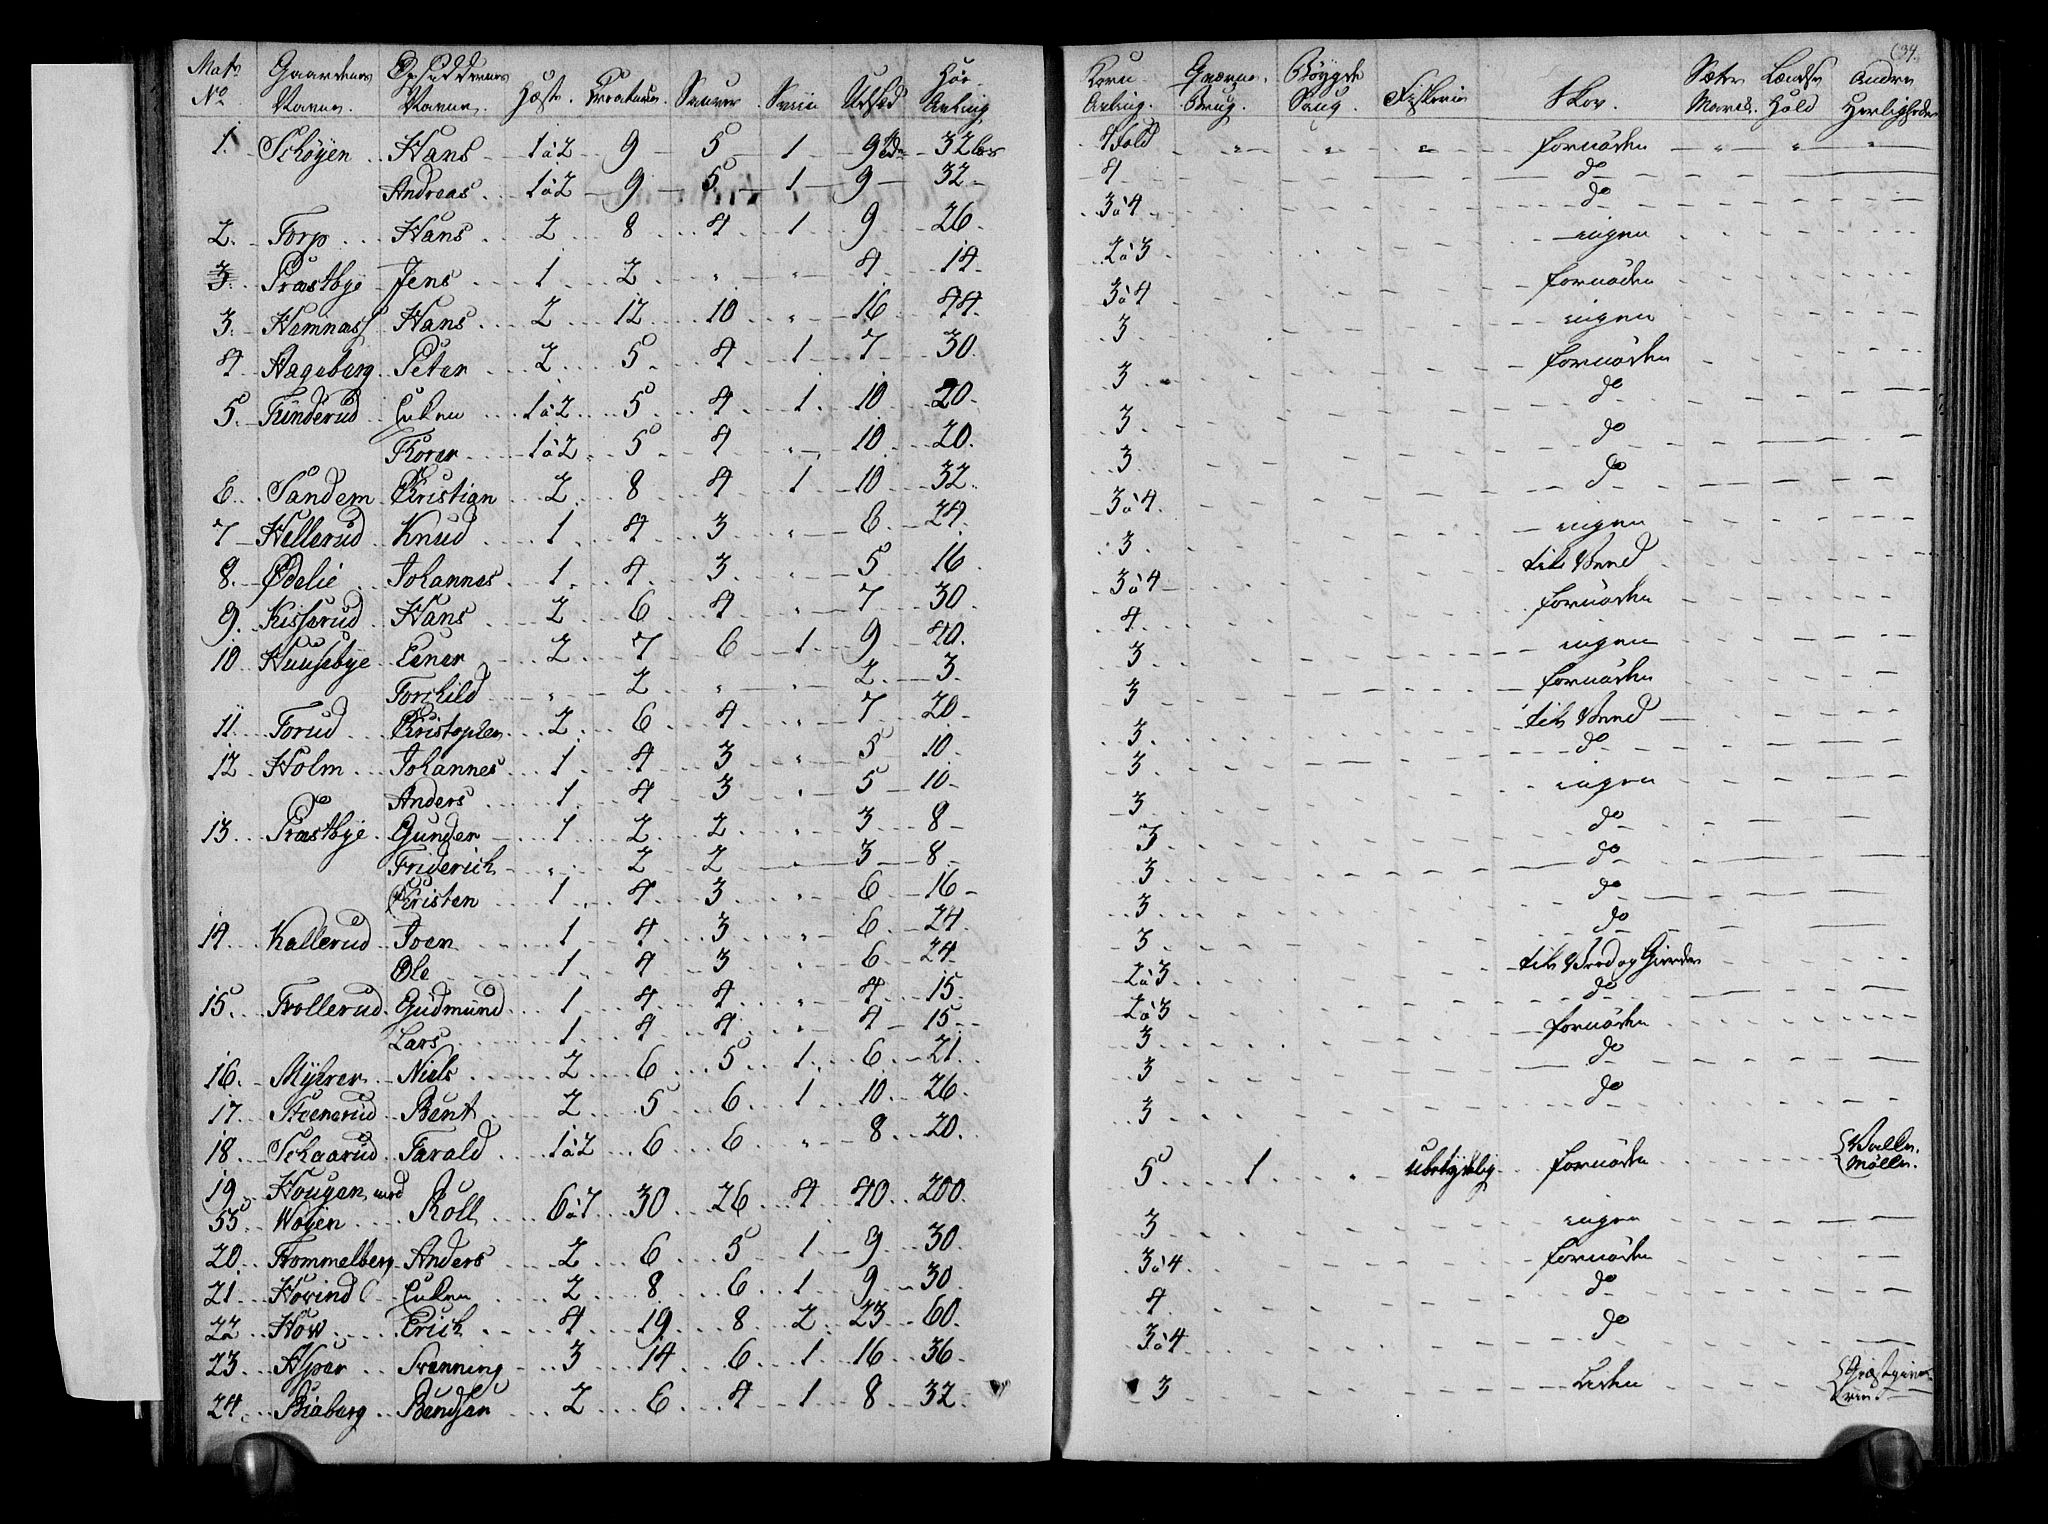 Mat. Gaardenes Opsiddernes Høe
No Navne. Navne. Hæste. Creature. Sauer Sviin Udsæd Avling
1. Schøyen Hans 1 à 2 9 5 1 9 tdr 32 læs
Andreas 1 à 2 9 5 1 9 32
2. Torp Hans 2 8 4 1 9 26
3. Præstbye Jens 1 2 " " 4 14
3. Hemnæss Hans 2 12 10 " 16 44
4 Hageberg Peter 2 5 4 1 7 30
5. Tunderud Enken 1 à 2 5 4 1 10 20
Thorer 1 à 2 5 4 " 10 20
6. Sandem Christian 2 8 4 1 10 32
7 Hellerud Knud 1 4 3 " 6 24
8. Ødelie Johannes 1 4 3 " 5 16
9. Kisserud Hans 2 6 4 " 7 30
10 Huusebye Einer 2 7 6 1 9 40
Torchild " 2 " " 2 3
11. Torud Christopher 2 6 4 " 7 20
12 Holm Johannes 1 4 3 " 5 10
Anders 1 4 3 " 5 10
13 Præstbye Gunder 1 2 2 " 3 8
Friderich " 2 2 " 3 8
Christen 1 4 3 " 6 16
14 Kallerud Joen 1 4 3 " 6 24
Ole 1 4 3 " 6 24
15. Trollerud Gudmund 1 4 4 " 4 15
Lars 1 4 4 " 4 15
16. Myhrer Niels 2 6 5 1 6 21
17. Steenerud Bent 2 5 6 1 10 26
18. Schaarud Tarald 1 à 2 6 6 " 8 20
19 Hougen med
55 Wøyen Roll 6 à 7 30 26 4 40 200
20. Trommelberg Anders 2 6 5 1 9 30
21. Høvind Enken 2 8 6 1 9 30
22 Høw Erich 4 19 8 2 23 60
23. Asper Svenning 3 14 6 1 16 36
24. Biaberg Bendser 2 6 4 1 8 32
34.
Korn Qværne Bøygde Sæter Lænds Andre
Avling. Brug. Saug. Fiskerie Skov. Havn. Hold Herligheder
4 fold " " " fornøden " " "
4 do
3 à 4 do
2 à 3 ingen
3 à 4 fornøden
3 ingen
3 fornøden
3 do
3 do
3 à 4 do
3 ingen
3 à 4 til Brænd
4 fornøden
3 ingen
3 fornøden
3 til Brænd
3 do
3 ingen
3 do
3 do
3 do
3 do
2 à 3 til Brænd og Gierder
2 à 3 do
3 fornøden
3 do
3 do
5 1 " ubetydelig fornøden Mølle.
3 ingen
3 à 4 fornøden
4 do
3 à 4 do
3 Liden